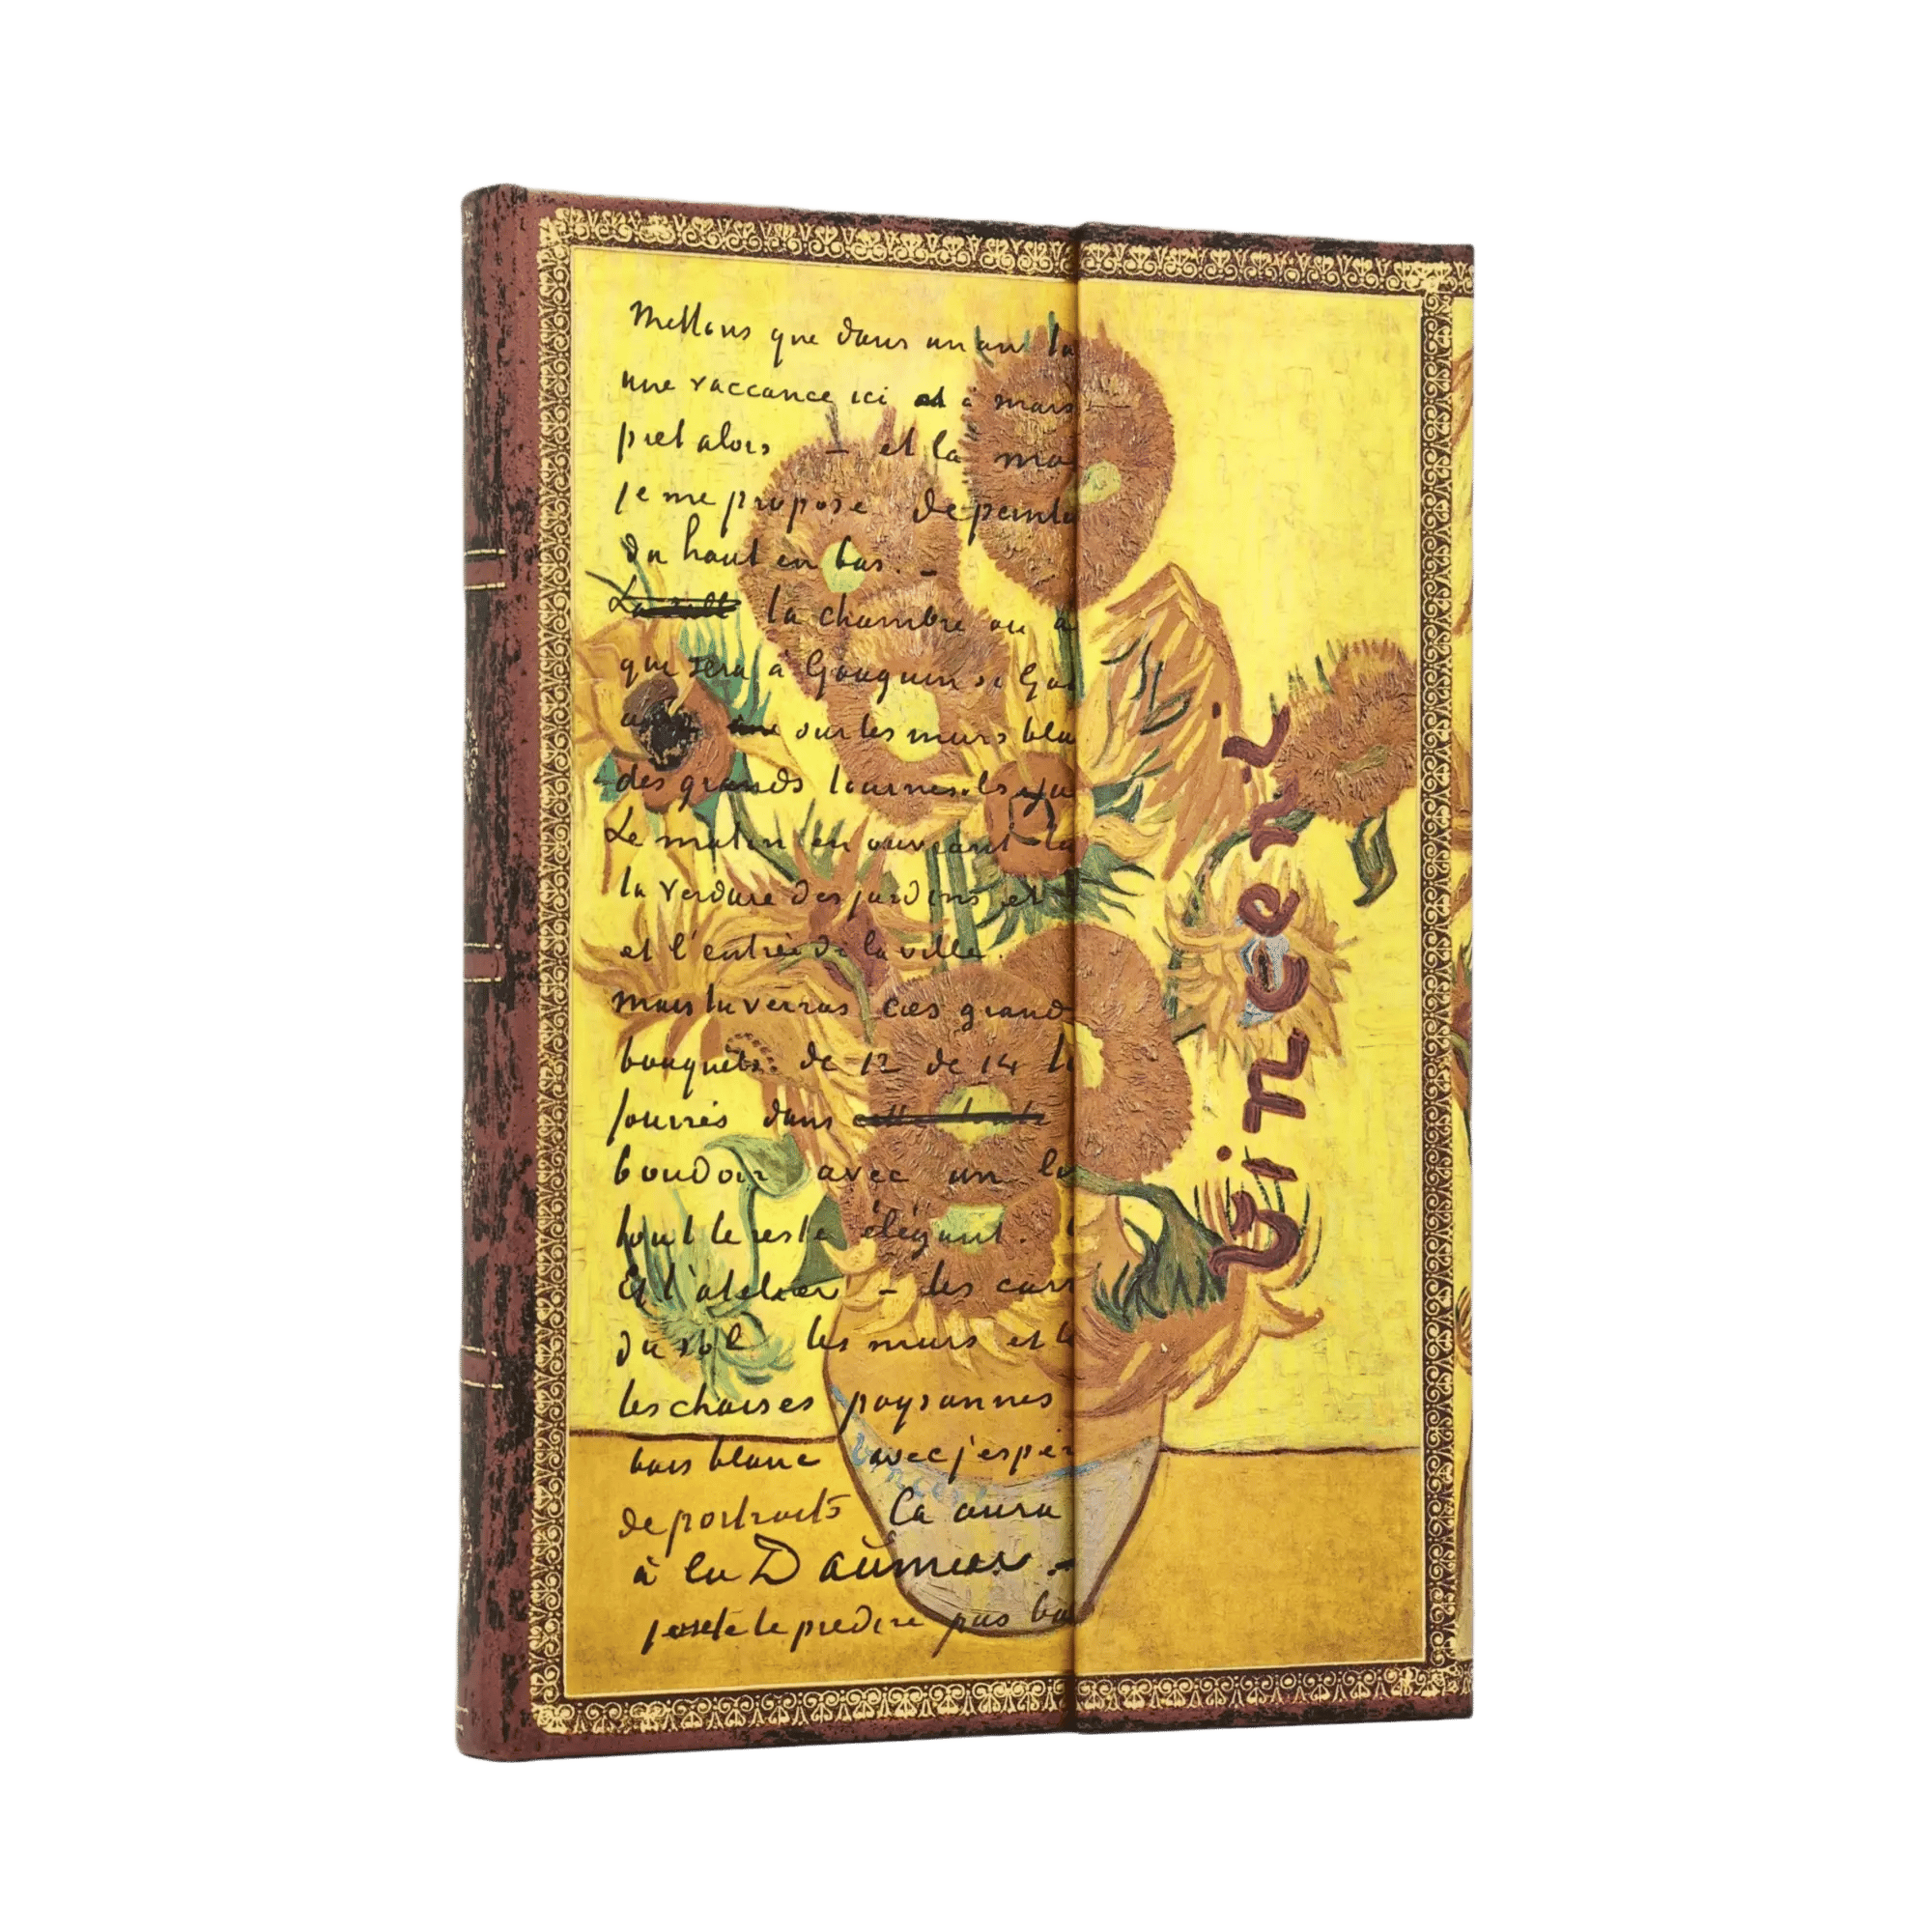 Mettons que dans un an tu
une vaccance ici et à mars
pret alors — et la ma
je me propose de peindre
du haut en bas. —
La salle la chambre ou a
que sera à Gauguin si Gau
sur les murs bla
des grands tournesols
Le matin en ouvrant la
la verdure des jardins et
et l'entrée de la ville.
mais tu verras ces grand
bouquets. de 12 de 14 t
fourrés dans
boudoir avec un
tout le reste élégant.
Et l'atelier — les carr
du sol les murs et
les chaises paysannes
bois blanc avec j'espér
de portraits Ca aura
à la Daumier —
le predire pas ba
Vincent
Vincent